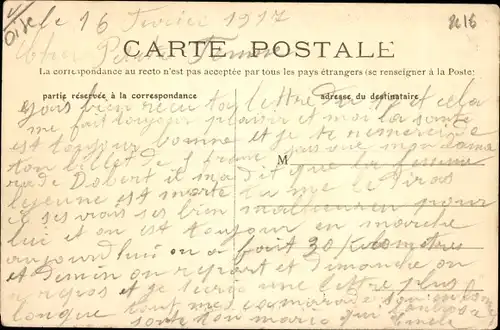 le 16 Fevrier 1917
Oise
2616
Cher Petite Femme
CARTE POSTALE
La correspondance au recto n'est pas acceptée par tous les pays étrangers (se renseigner à la Poste)
partie réservée à la correspondance
adresse du destinataire
bien recu ta lettre du et cela
me fait toujour plaisir et moi la santé
est toujour bonne et je te remercie
M
ton billet de 1 franc que
de Dobert il m'a dit que la femme
lejeune est morte tu me le diras
ses bien malheureu pour
lui et on est toujour en marche
aujourdhui on a fait 30 Kilometres
et demin on repart et Dimanche on
repos et je une lettre plus
longue tout mes camarade
ton mari qui